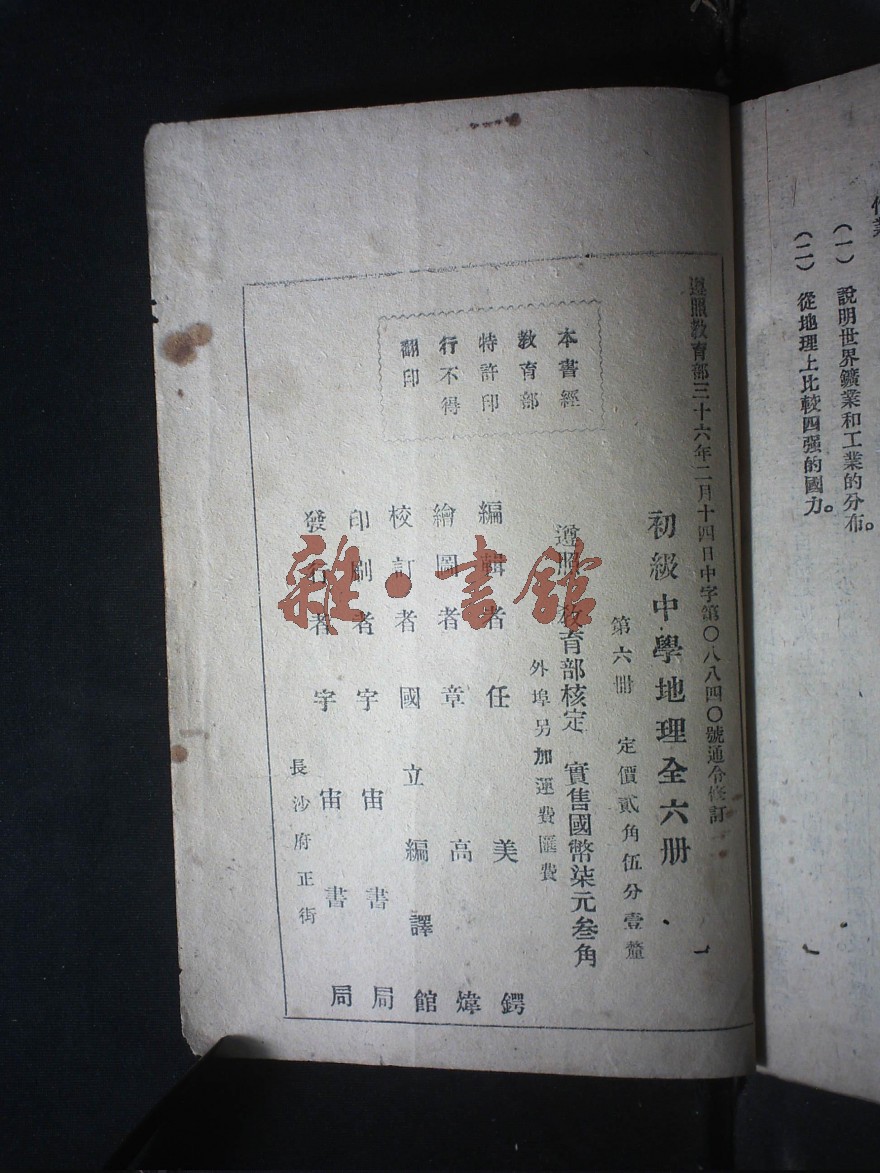 作業
(一) 說明世界鑛業和工業的分布。
(二) 從地理上比較四强的國力。
遵照教育部三十六年二月十四日中字第〇八八四〇號通令修訂
初級中學地理全六册
第六册 定價貳角伍分壹釐
遵照 敎育部核定 實售國幣柒元叁角
外埠另加運費匯費
本書經
敎育部
特許印
行不得
翻印
編輯者 任美鍔
繪圖者 章高煒
校訂者 國立編譯館
印刷者 宇宙書局
發行者 宇宙書局
長沙府正街
雜·書館